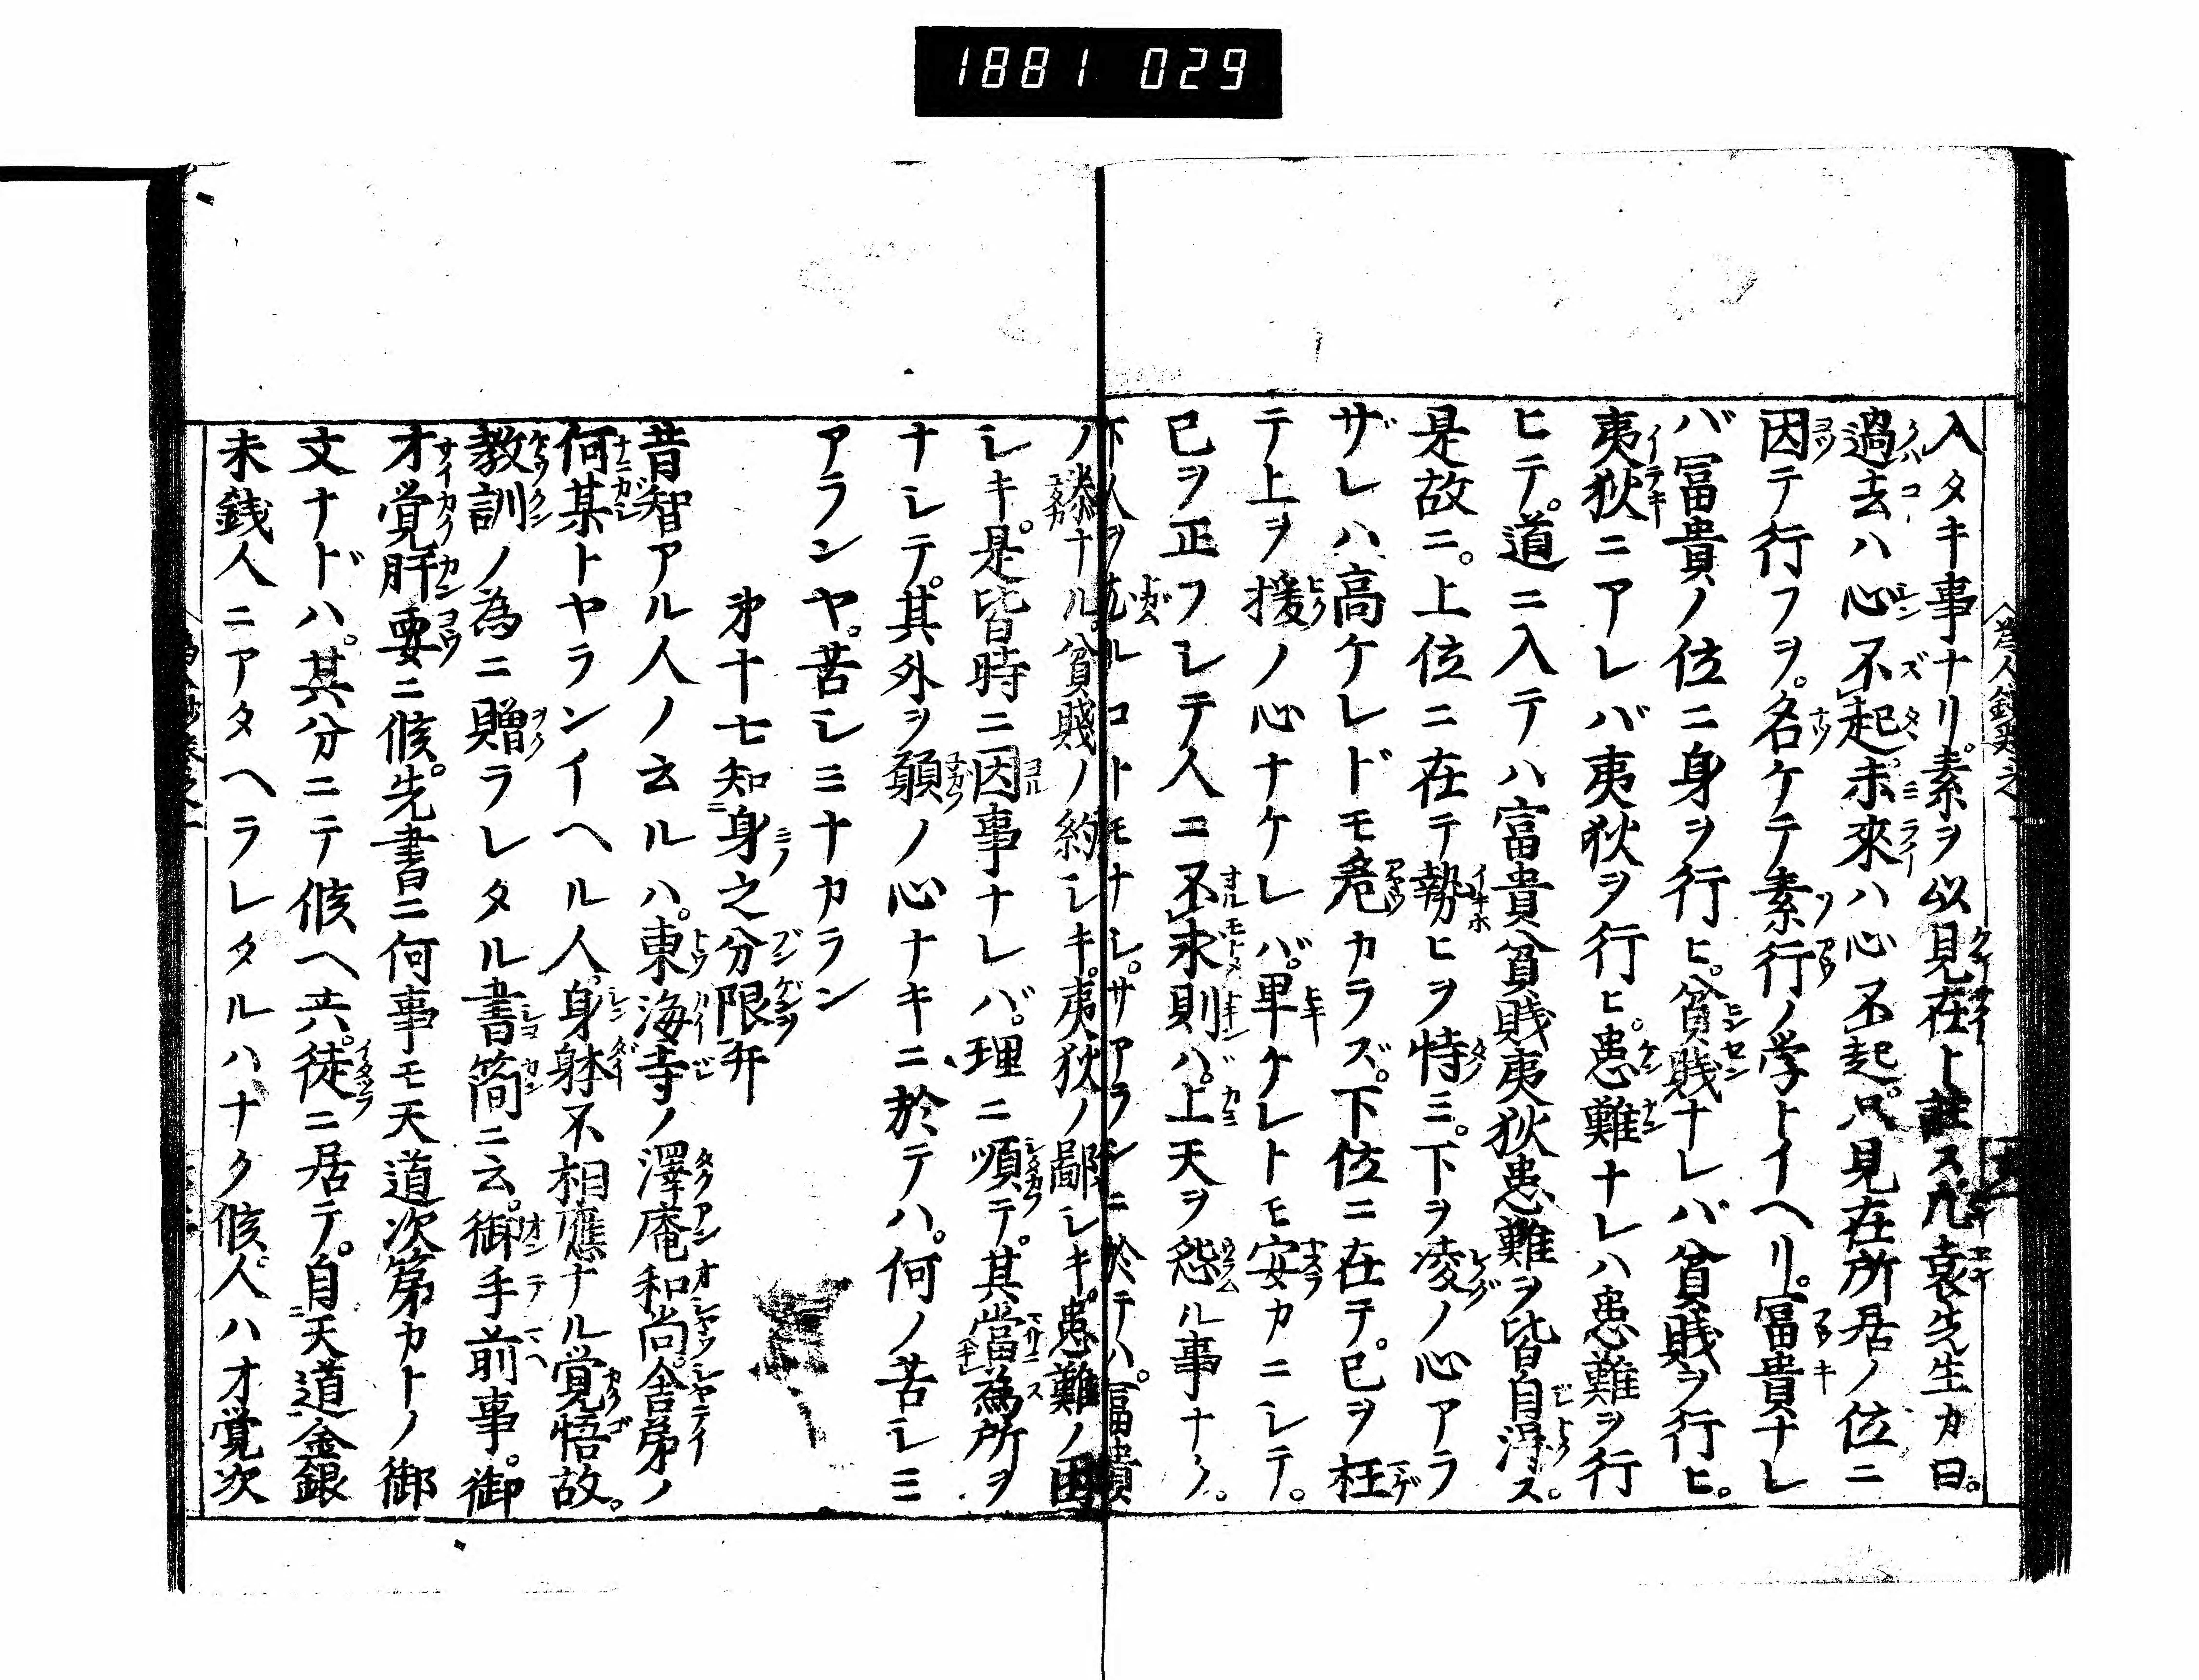 1881 029
入タキ事ナリ。素ヲ以見在ト註ス。凡袁先生カ曰。
過去ハ心不起。未來ハ心不起。只見在所居ノ位ニ
因テ行フヲ。名ケテ素行ノ学トイヘリ。冨貴ナレ
バ冨貴ノ位ニ身ヲ行ヒ。貧賤ナレバ貧賤ヲ行ヒ。
夷狄ニアレバ夷狄ヲ行ヒ。患難ナレハ患難ヲ行
ヒテ。道ニ入テハ富貴貧賤夷狄患難ヲ皆自得ス。
是故ニ。上位ニ在テ勢ヒヲ恃ミ。下ヲ凌ノ心アラ
ザレハ高ケレドモ危カラズ。下位ニ在テ。已ヲ枉
テ上ヲ援ノ心ナケレバ。卑ケレトモ安カニシテ。
已ヲ正フレテ人ニ不求則ハ。上天ヲ怨ル事ナク。
下人ヲ尤ルコトモナシ。サアランニ於テハ。冨貴
ノ泰ナル。貧賤ノ約シキ。夷狄ノ鄙シキ。患難ノ困
シキ。是皆時ニ因事ナレバ。理ニ順テ。其當為所ヲ
ナレテ。其外ヲ願ノ心ナキニ於テハ。何ノ苦シミ
アランヤ。苦シミナカラン
第十七知身之分限弁
昔智アル人ノ云ルハ。東海寺ノ澤庵和尚。舎弟ノ
何某トヤランイヘル人。身躰不相應ナル覚悟故。
教訓ノ為ニ贈ラレタル書簡ニ云。御手前事。御
才覚肝要ニ候。先書ニ何事モ天道次第カトノ御
文ナドハ。其分ニテ候ヘ共。徒ニ居テ。自天道金銀
未銭人ニアタヘラレタルハナク候。人ハオ覚次